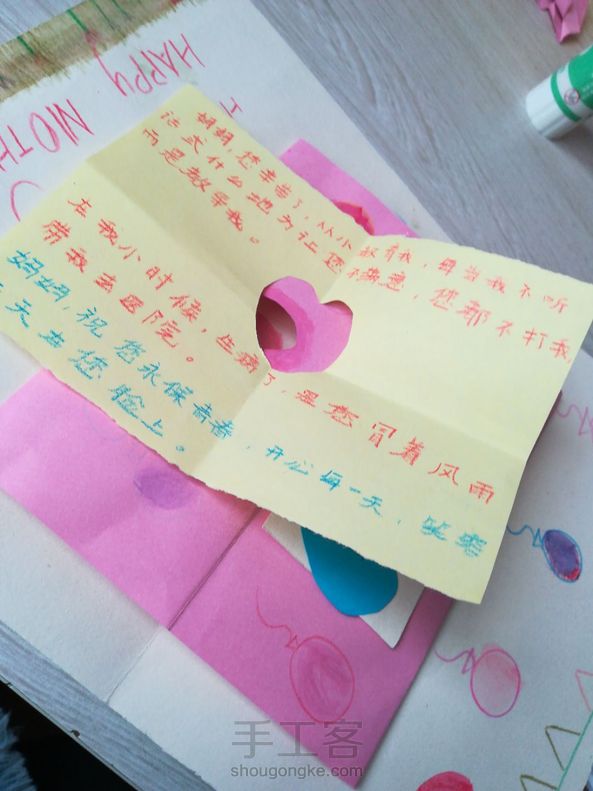 HAPPY
MOTH
妈妈，您辛苦了，从小教育我，每当我不听
话或什么地方让您不满意，您都不打我
而是教导我。
在我小时候，生病了，是您冒着风雨
带我去医院。
妈妈，祝您永保青春，开心每一天，笑容
天天在您脸上。
手工客
shougongke.com